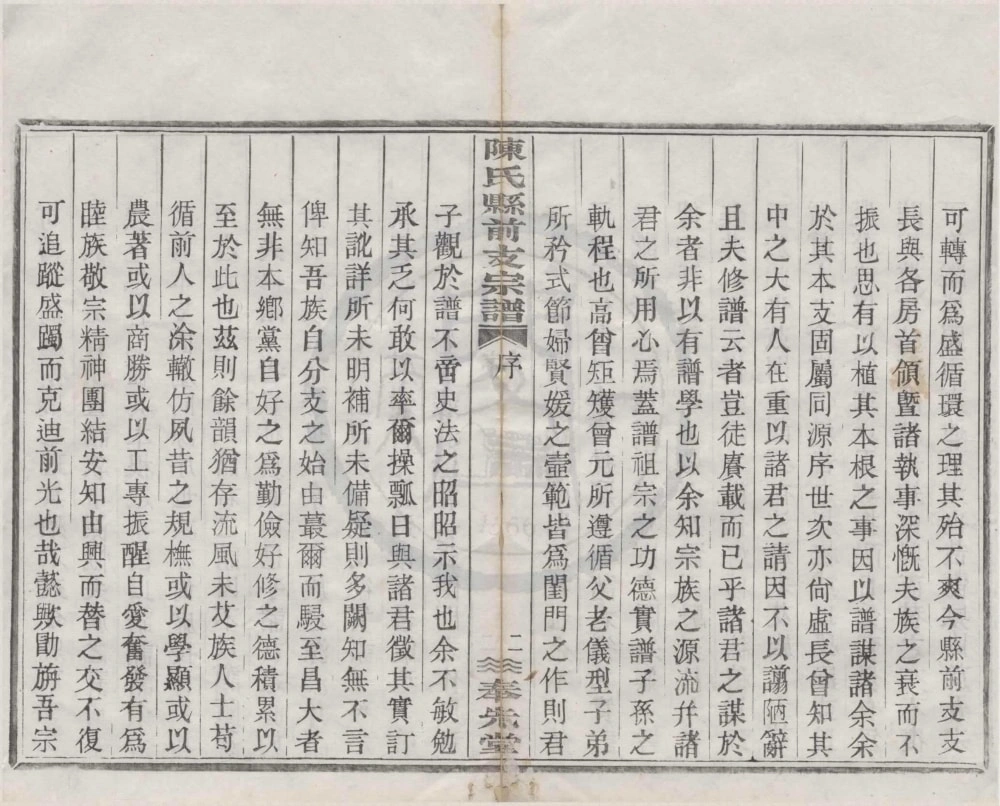 可轉而爲盛循環之理其殆不爽今縣前支支
長與各房首領曁諸執事深慨夫族之衰而不
振也思有以植其本根之事因以譜謀諸余余
於其本支固屬同源序世次亦尙虛長曾知其
中之大有人在重以諸君之請因不以譾陋辭
且夫修譜云者豈徒賡載而已乎諸君之謀於
余者非以有譜學也以余知宗族之源流幷諸
君之所用心焉蓋譜祖宗之功德實譜子孫之
軌程也高曾矩矱曾元所遵循父老儀型子弟
所矜式節婦賢媛之壼範皆爲閨門之作則君
陳氏縣前支宗譜 序 二 奉先堂
子觀於譜不啻史法之昭昭示我也余不敏勉
承其乏何敢以率爾操瓢日與諸君徵其實訂
其訛詳所未明補所未備疑則多闕知無不言
俾知吾族自分支之始由蕞爾而駸至昌大者
無非本鄉黨自好之爲勤儉好修之德積累以
至於此也茲則餘韻猶存流風未艾族人士苟
循前人之涂轍仿夙昔之規橅或以學顯或以
農著或以商勝或以工專振醒自愛奮發有爲
睦族敬宗精神團結安知由興而替之交不復
可追蹤盛躅而克迪前光也哉懿歟勖旃吾宗